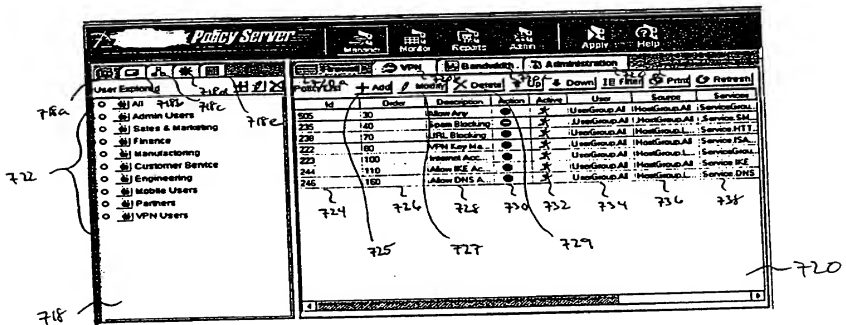 Policy Server
Manager Monitor Reports Admin Apply Help
Firewall VPN Bandwidth Administration
User Explorer
Policy List Add Modify Delete Up Down Filter Print Refresh
718a 718b 718c 718e
All
Admin Users
Sales & Marketing
Finance
Manufactoring
Customer Service
Engineering
Mobile Users
Partners
VPN Users
Id Order Description Action Active User Source Services
505 30 Allow Any UserGroup.All HostGroup.All ServiceGrou...
235 40 Spam Blocking UserGroup.All HostGroup.L... Service.SM...
238 70 URL Blocking UserGroup.All HostGroup.L... Service.HTT...
222 80 VPN Key Ma... UserGroup.All HostGroup.All Service.ISA...
223 100 Internet Acc... UserGroup.All HostGroup.L... ServiceGrou...
244 110 Allow IKE Ac... UserGroup.All HostGroup.All Service.IKE
246 160 Allow DNS A... UserGroup.All HostGroup.L... Service.DNS
722
724 726 728 730 732 734 736 738
725 727 729
720
718